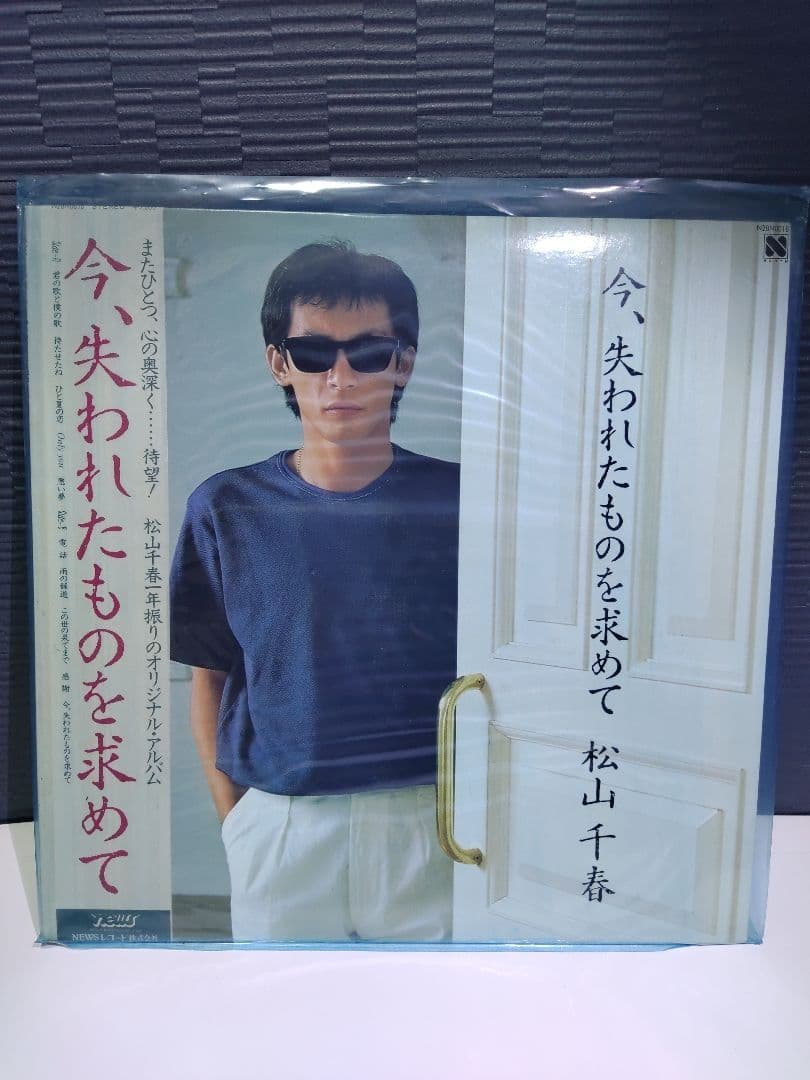 STEREO
今、失われたものを求めて
またひとつ、心の奥深く……待望！ 松山千春一年振りのオリジナル・アルバム
君の歌と僕の歌 待たせたね ひと夏の恋 Only you 悪い夢 電話 雨の蘇道 この世の果てまで 感謝 今、失われたものを求めて
news
NEWSレコード株式会社
N28N0016
N
今、失われたものを求めて 松山千春